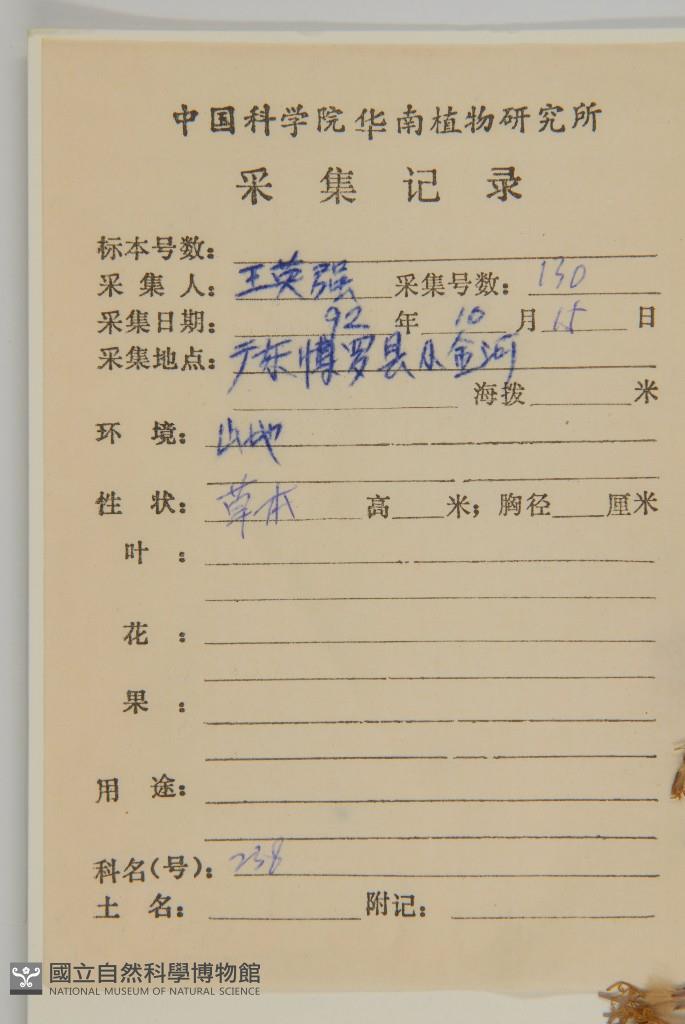 中国科学院华南植物研究所
采集记录
标本号数：
采集人：王英强 采集号数：130
采集日期：92年10月15日
采集地点：广东博罗县小金河
海拨 米
环境：山地
性状：草本 高 米；胸径 厘米
叶：
花：
果：
用途：
科名（号）：238
土名： 附记：
國立自然科學博物館
NATIONAL MUSEUM OF NATURAL SCIENCE